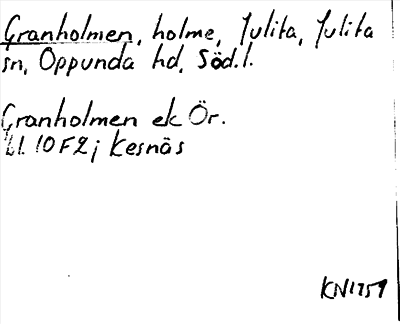 Granholmen, holme, Julita, Julita
sn, Oppunda hd, Söd.l.
Granholmen ek Ör.
bl. 10F2j Kesnäs
KN1757